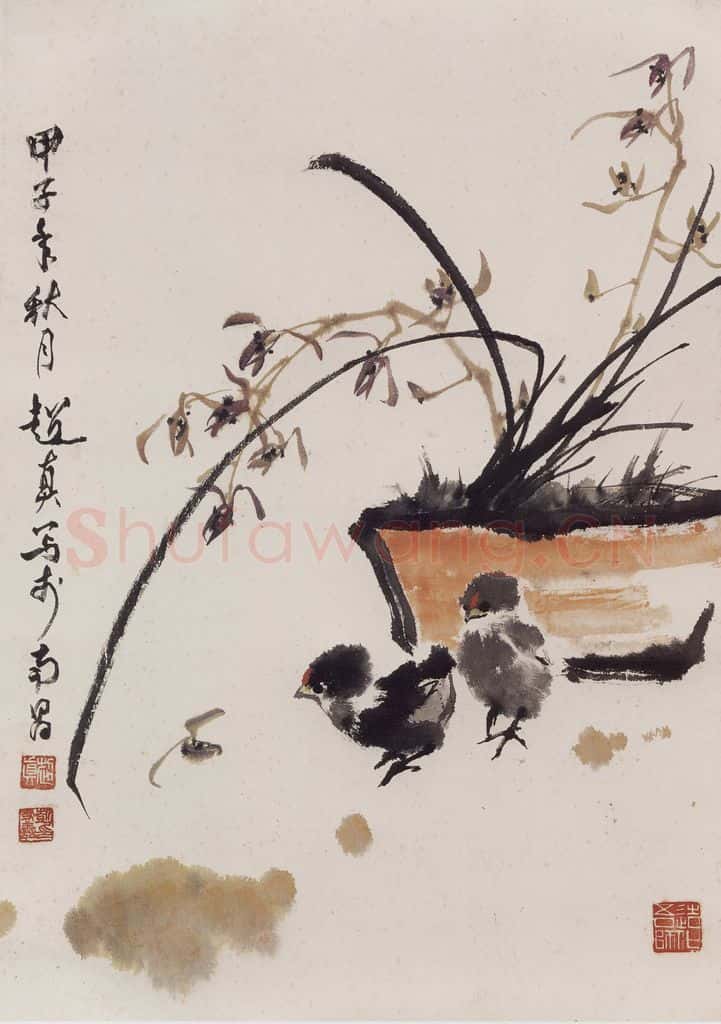 甲子年秋月趙真写于南昌
ShufaWang.CN
趙真